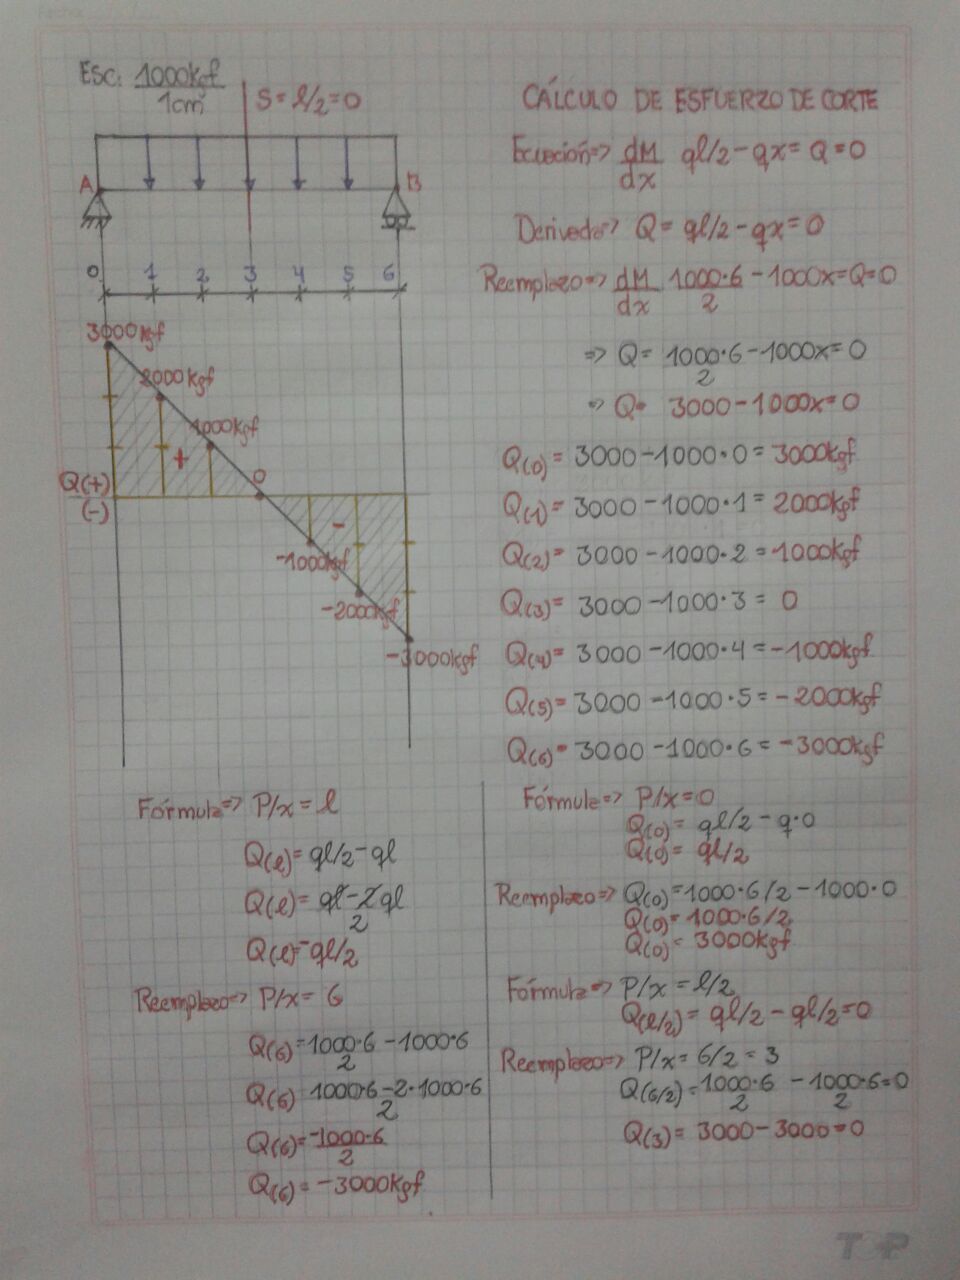 Esc: 1000kgf
1cm
S = l/2 = 0
A
B
0 1 2 3 4 5 6
3000kgf
2000kgf
1000kgf
+
0
Q(+)
(-)
-
-1000kgf
-2000kgf
-3000kgf
CÁLCULO DE ESFUERZO DE CORTE
Ecuación=> dM/dx ql/2 - qx = Q = 0
Derivada=> Q = ql/2 - qx = 0
Reemplazo=> dM/dx 1000·6/2 - 1000x = Q = 0
=> Q = 1000·6/2 - 1000x = 0
=> Q = 3000 - 1000x = 0
Q(0) = 3000 - 1000·0 = 3000kgf
Q(1) = 3000 - 1000·1 = 2000kgf
Q(2) = 3000 - 1000·2 = 1000kgf
Q(3) = 3000 - 1000·3 = 0
Q(4) = 3000 - 1000·4 = -1000kgf
Q(5) = 3000 - 1000·5 = -2000kgf
Q(6) = 3000 - 1000·6 = -3000kgf
Fórmula=> P/x = l
Q(l) = ql/2 - ql
Q(l) = ql - 2ql/2
Q(l) = -ql/2
Reemplazo=> P/x = 6
Q(6) = 1000·6/2 - 1000·6
Q(6) 1000·6 - 2·1000·6/2
Q(6) = -1000·6/2
Q(6) = -3000kgf
Fórmula=> P/x = 0
Q(0) = ql/2 - q·0
Q(0) = ql/2
Reemplazo=> Q(0) = 1000·6/2 - 1000·0
Q(0) = 1000·6/2
Q(0) = 3000kgf
Fórmula=> P/x = l/2
Q(l/2) = ql/2 - ql/2 = 0
Reemplazo=> P/x = 6/2 = 3
Q(6/2) = 1000·6/2 - 1000·6/2 = 0
Q(3) = 3000 - 3000 = 0
TOP